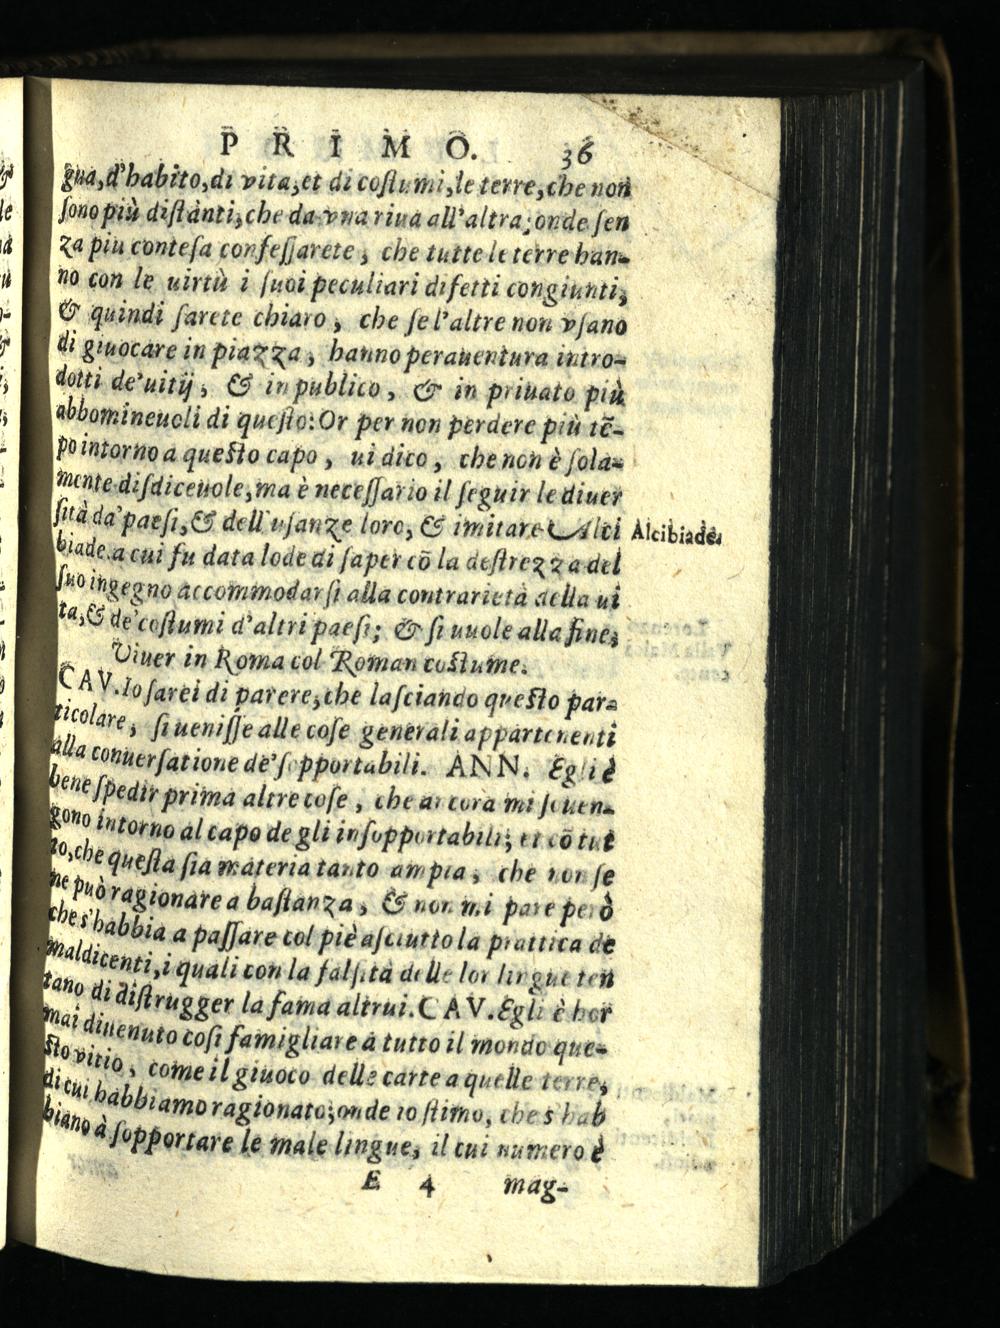 PRIMO. 36
gua, d'habito, di vita, et di costumi, le terre, che non
sono più distanti, che da vna riua all'altra; onde sen
za piu contesa confessarete, che tutte le terre han-
no con le uirtù i suoi peculiari difetti congiunti,
& quindi sarete chiaro, che se l'altre non vsano
di giuocare in piazza, hanno perauentura intro-
dotti de'uitij, & in publico, & in priuato più
abbomineuoli di questo: Or per non perdere più tē-
po intorno a questo capo, ui dico, che non è sola-
mente disdiceuole, ma è necessario il seguir le diuer
sità da'paesi, & dell'usanze loro, & imitare Alci
Alcibiade.
biade. a cui fu data lode di saper cō la destrezza del
suo ingegno accommodarsi alla contrarietà della ui
ta, & de'costumi d'altri paesi; & si uuole alla fine,
Viuer in Roma col Roman costume.
CAV. Io sarei di parere, che lasciando questo par-
ticolare, si uenisse alle cose generali appartenenti
alla conuersatione de'sopportabili. ANN. Egli è
bene spedir prima altre cose, che ancora mi souen-
gono intorno al capo de gli insopportabili; et cō tut
to, che questa sia materia tanto ampia, che non se
ne può ragionare a bastanza, & non mi pare però
che s'habbia a passare col piè asciutto la prattica de
maldicenti, i quali con la falsità delle lor lingue ten
tano di distrugger la fama altrui. CAV. Egli è hor
mai diuenuto cosi famigliare à tutto il mondo que-
sto vitio, come il giuoco delle carte a quelle terre,
di cui habbiamo ragionato; onde io stimo, che s'hab
biano à sopportare le male lingue, il cui numero è
E 4 mag-